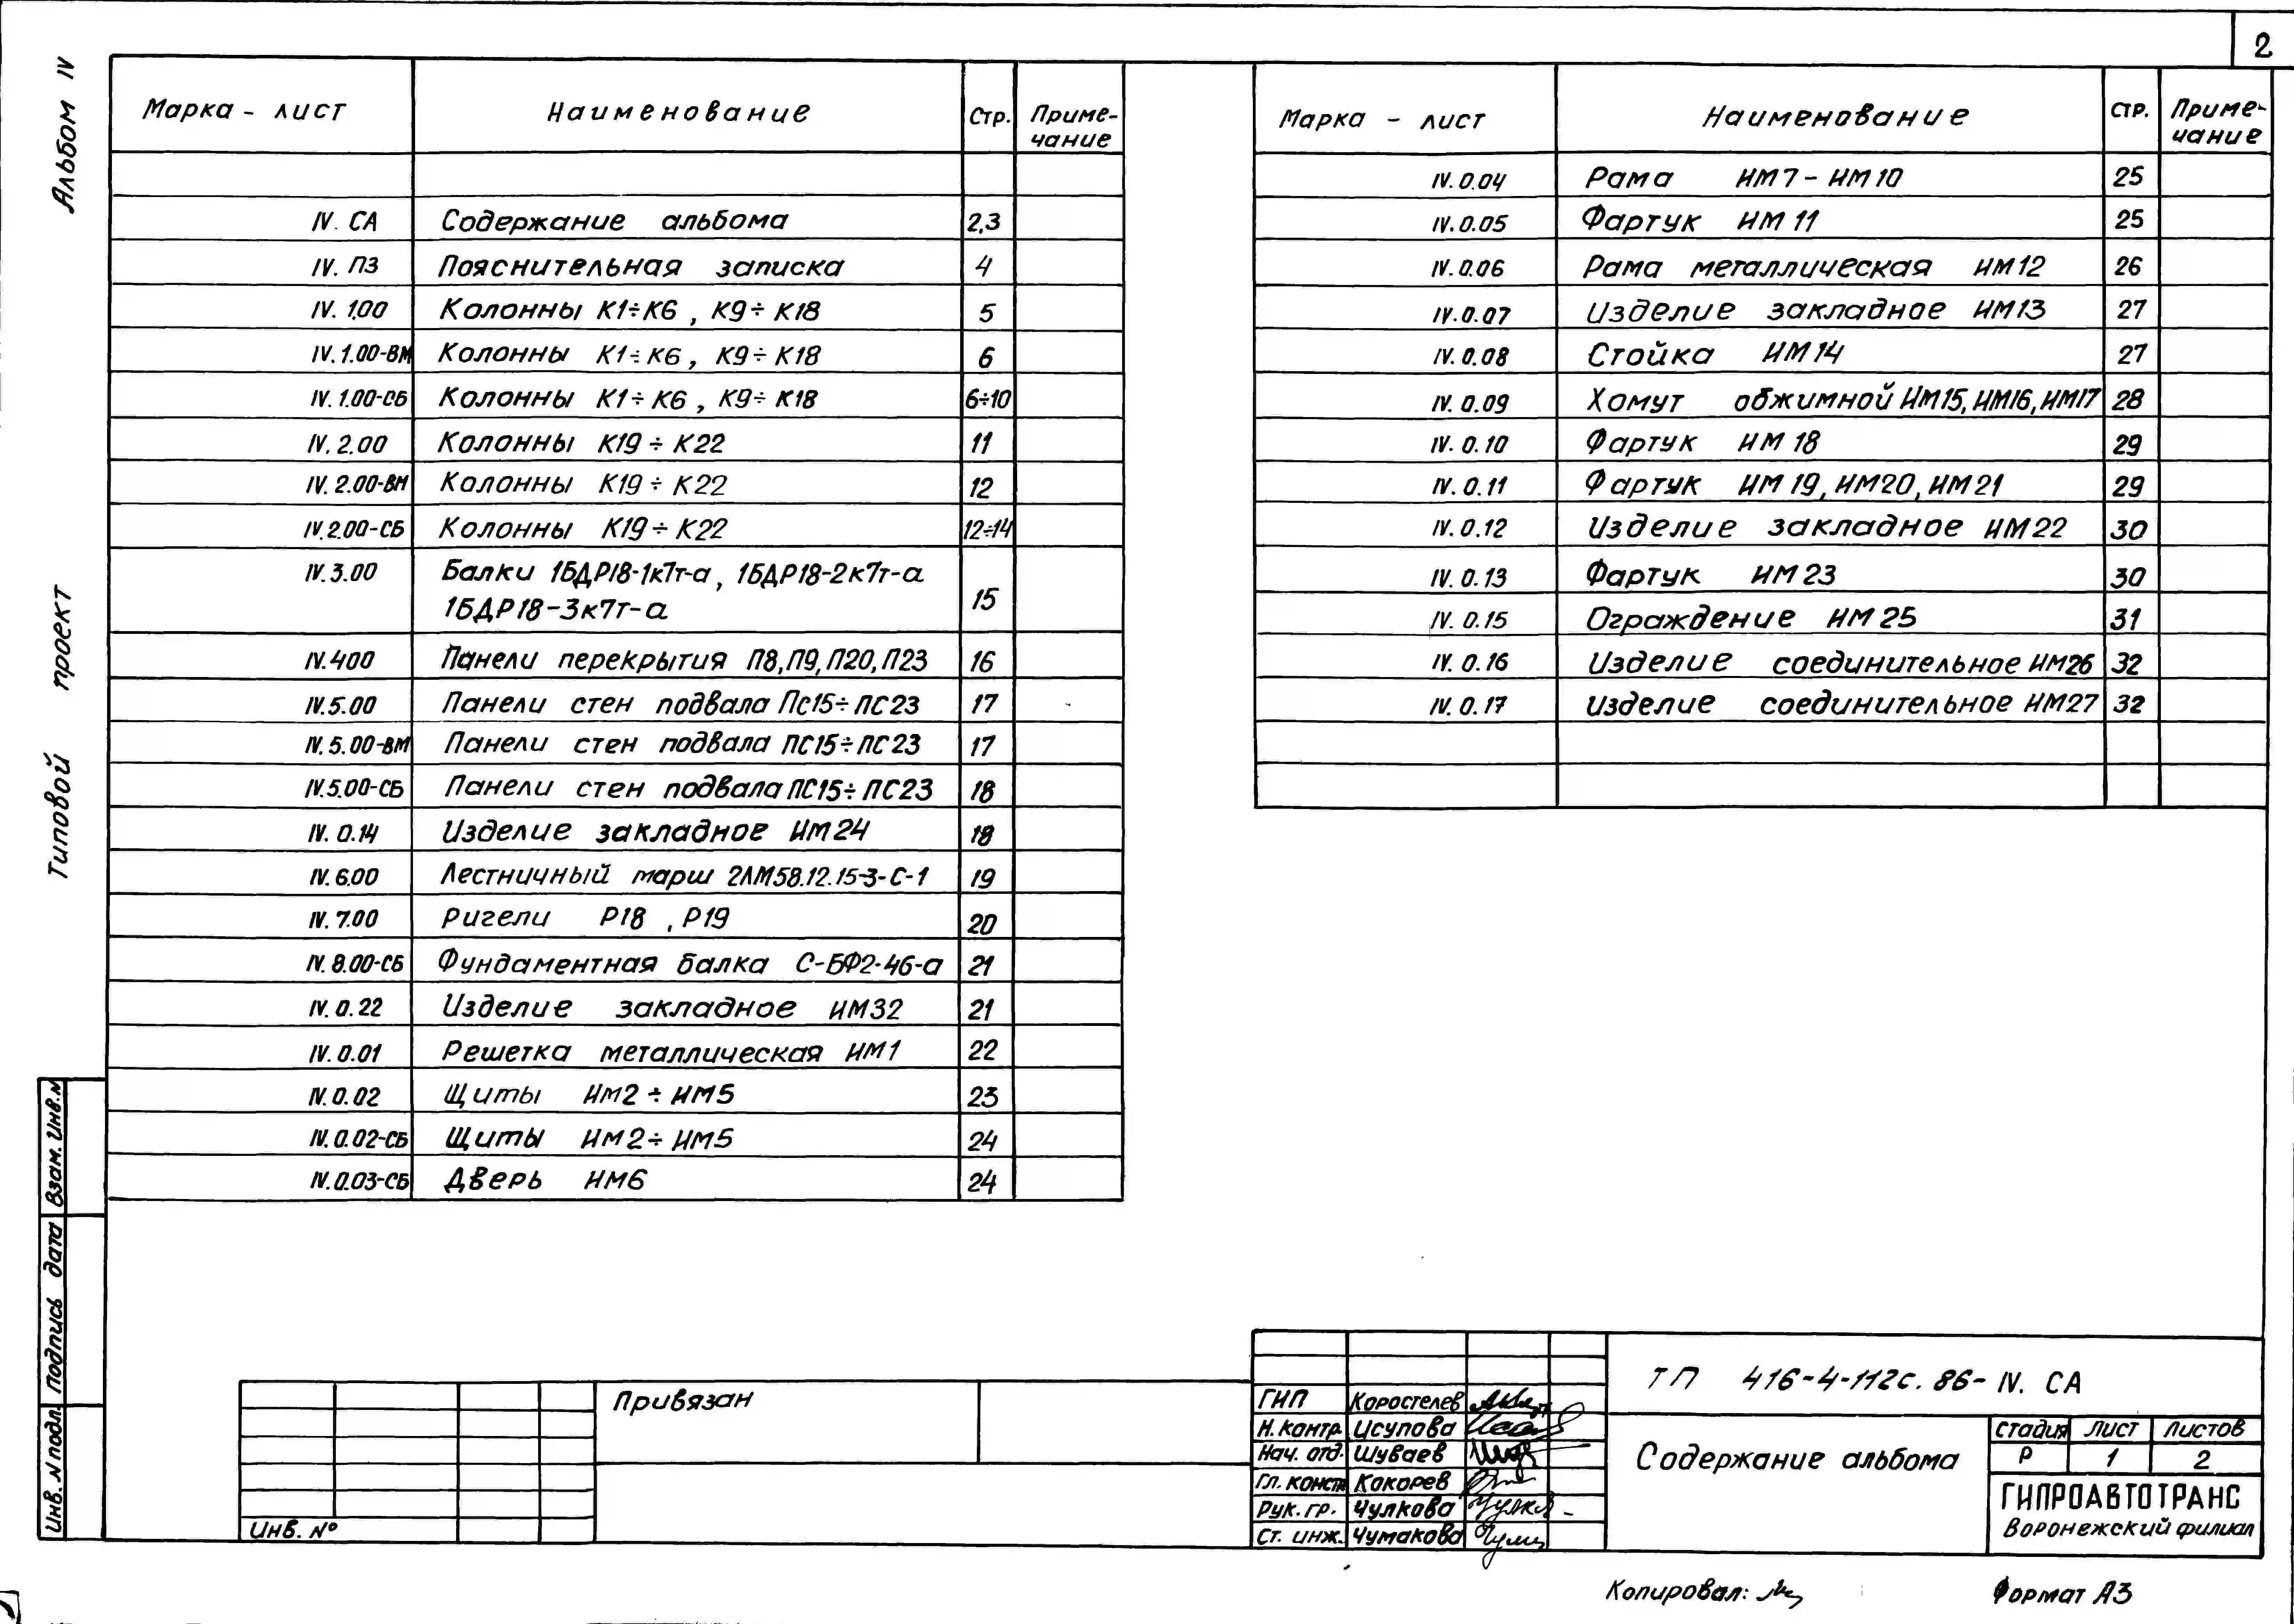 2
Альбом IV
Типовой проект
Марка - лист Наименование Стр. Приме-
чание
IV. СА Содержание альбома 2,3
IV. ПЗ Пояснительная записка 4
IV. 1.00 Колонны К1÷К6, К9÷К18 5
IV. 1.00-ВМ Колонны К1÷К6, К9÷К18 6
IV. 1.00-СБ Колонны К1÷К6, К9÷К18 6÷10
IV. 2.00 Колонны К19÷К22 11
IV. 2.00-ВМ Колонны К19÷К22 12
IV. 2.00-СБ Колонны К19÷К22 12÷14
IV. 3.00 Балки 1БДР18-1к7т-а, 1БДР18-2к7т-а
1БДР18-3к7т-а 15
IV.400 Панели перекрытия П8, П9, П20, П23 16
IV.5.00 Панели стен подвала Пс15÷ПС23 17
IV.5.00-ВМ Панели стен подвала ПС15÷ПС23 17
IV.5.00-СБ Панели стен подвала ПС15÷ПС23 18
IV. 0.14 Изделие закладное ИМ24 18
IV. 6.00 Лестничный марш 2ЛМ58.12.15-3-С-1 19
IV. 7.00 Ригели Р18, Р19 20
IV. 8.00-СБ Фундаментная балка С-БФ2-46-а 21
IV. 0.22 Изделие закладное ИМ32 21
IV. 0.01 Решетка металлическая ИМ1 22
IV. 0.02 Щиты ИМ2÷ИМ5 23
IV. 0.02-СБ Щиты ИМ2÷ИМ5 24
IV. 0.03-СБ Дверь ИМ6 24
Марка - лист Наименование стр. Приме-
чание
IV. 0.04 Рама ИМ7-ИМ10 25
IV. 0.05 Фартук ИМ11 25
IV. 0.06 Рама металлическая ИМ12 26
IV. 0.07 Изделие закладное ИМ13 27
IV. 0.08 Стойка ИМ14 27
IV. 0.09 Хомут обжимной ИМ15, ИМ16, ИМ17 28
IV. 0.10 Фартук ИМ18 29
IV. 0.11 Фартук ИМ19, ИМ20, ИМ21 29
IV. 0.12 Изделие закладное ИМ22 30
IV. 0.13 Фартук ИМ23 30
IV. 0.15 Ограждение ИМ25 31
IV. 0.16 Изделие соединительное ИМ26 32
IV. 0.17 Изделие соединительное ИМ27 32
Взам. Инв.N
Подпись дата
Инв.N подл.
Привязан
Инв. №
ГИП Коростелев
Н.контр. Исупова
Нач. отд. Шуваев
Гл. конст. Кокорев
Рук. гр. Чулкова
Ст. инж. Чумакова
ТП 416-4-112с.86-IV. СА
Содержание альбома
стадия Лист Листов
Р 1 2
ГИПРОАВТОТРАНС
Воронежский филиал
Копировал:
Формат А3